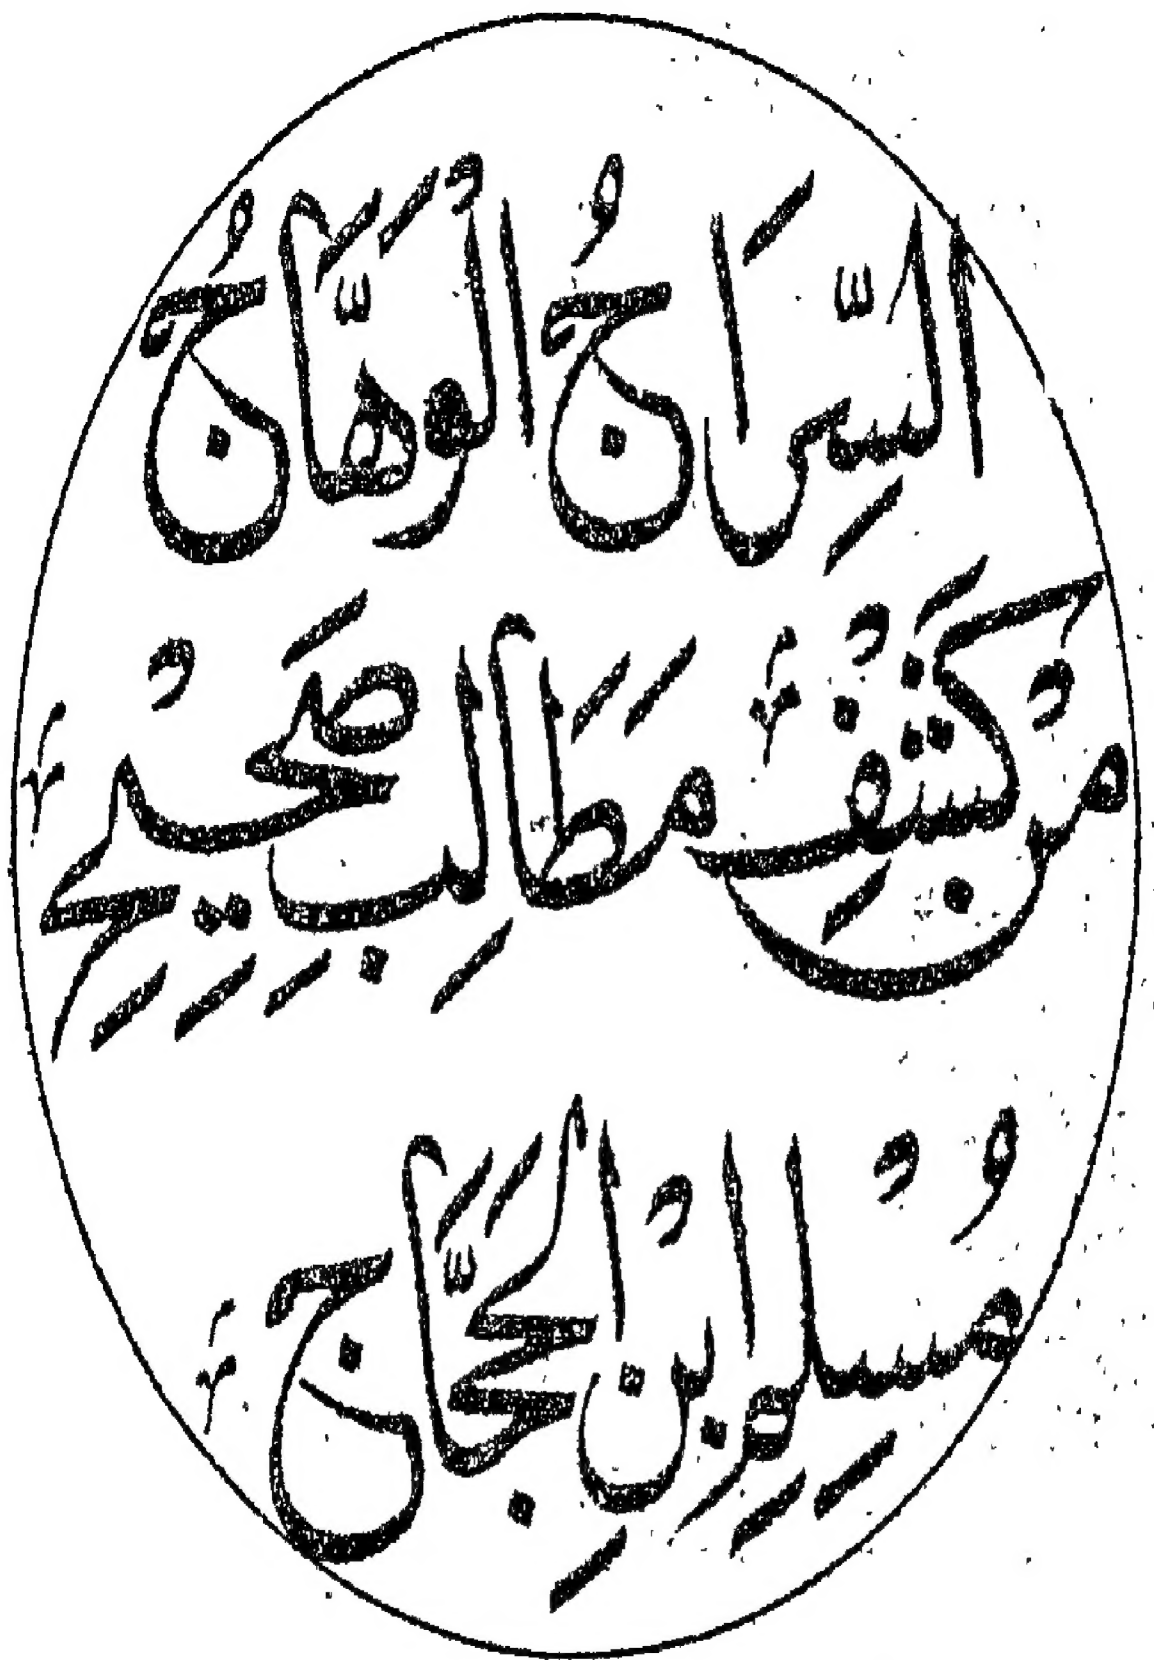 السِّرَاجُ الْوَهَّاجُ
مِنْ كَشْفِ مَطَالِبِ صَحِيْحِ
مُسْلِمِ ابْنِ الْحَجَّاجِ